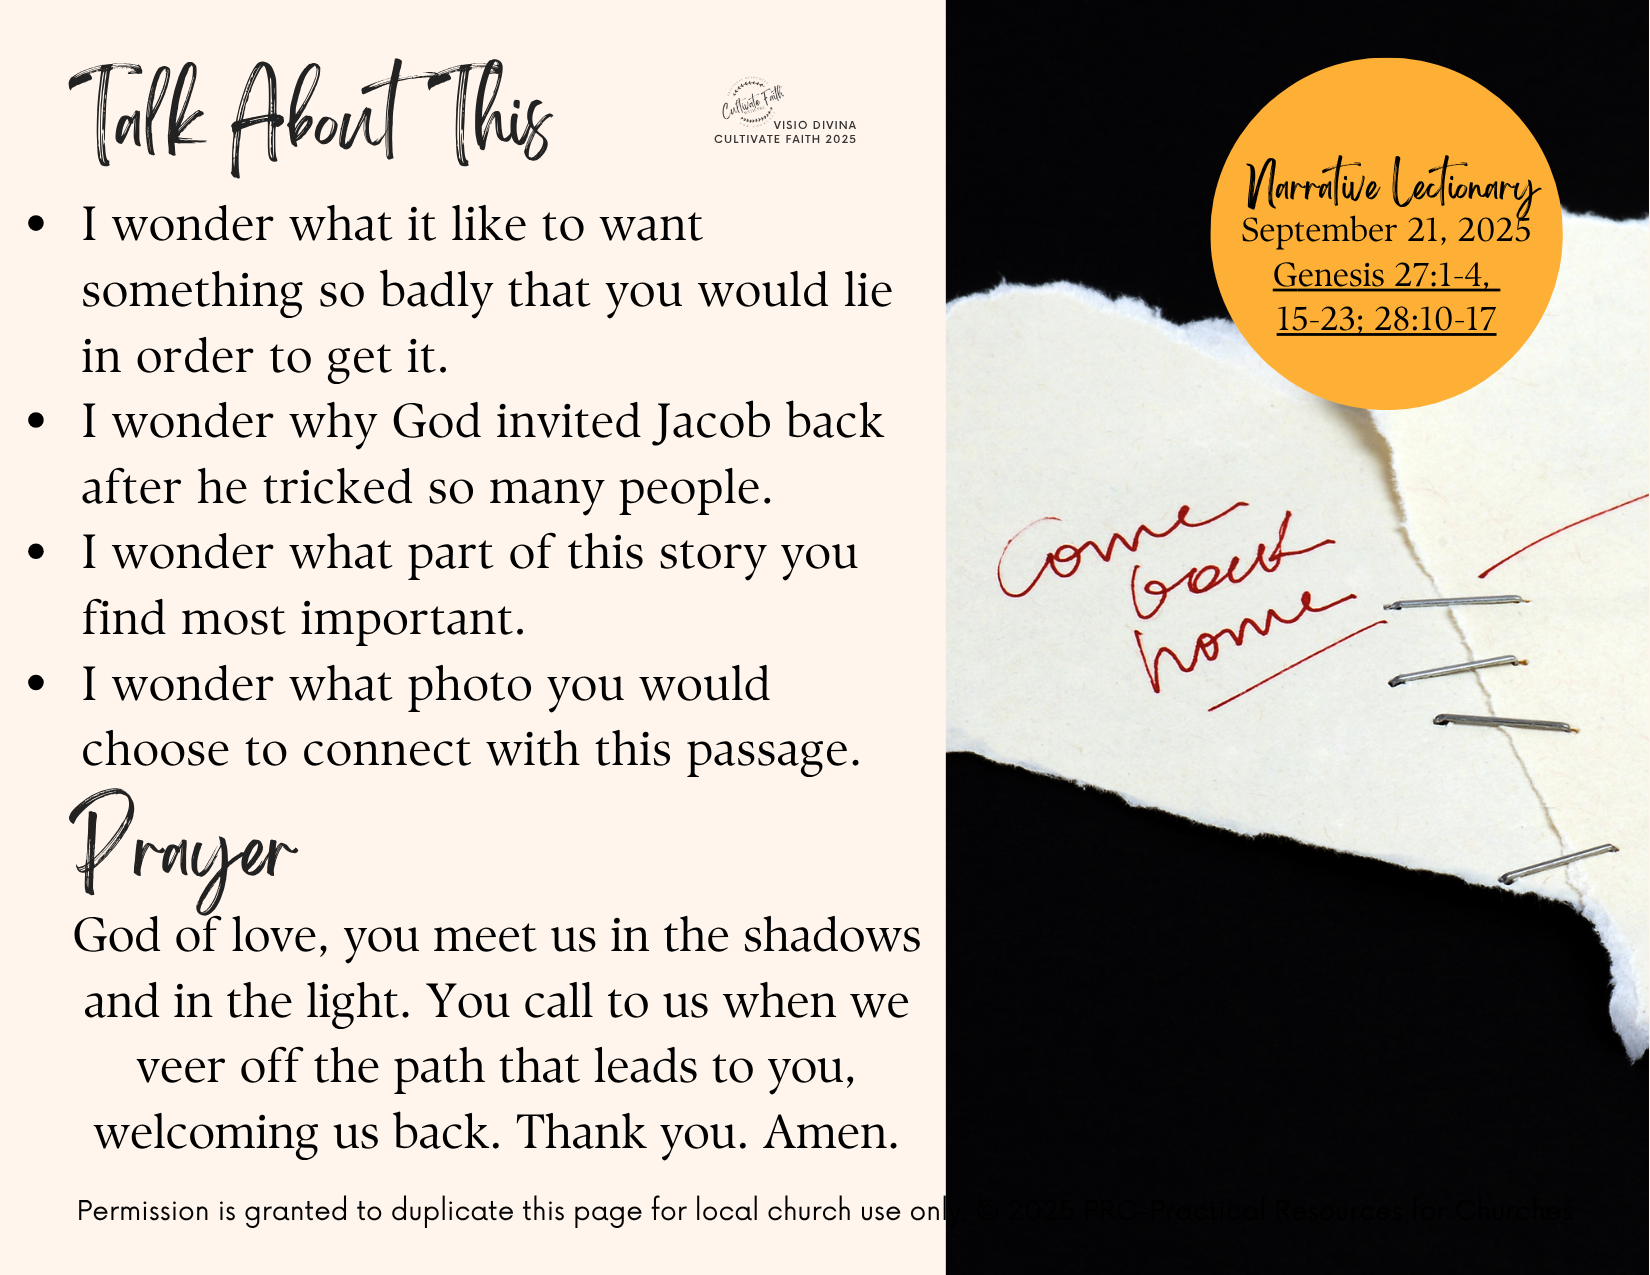 Talk About This
Cultivate Faith
VISIO DIVINA
CULTIVATE FAITH 2025
• I wonder what it like to want
something so badly that you would lie
in order to get it.
• I wonder why God invited Jacob back
after he tricked so many people.
• I wonder what part of this story you
find most important.
• I wonder what photo you would
choose to connect with this passage.
Prayer
God of love, you meet us in the shadows
and in the light. You call to us when we
veer off the path that leads to you,
welcoming us back. Thank you. Amen.
Narrative Lectionary
September 21, 2025
Genesis 27:1-4,
15-23; 28:10-17
Come
back
home
Permission is granted to duplicate this page for local church use only. © 2025 PRC-Practical Resources for Churches